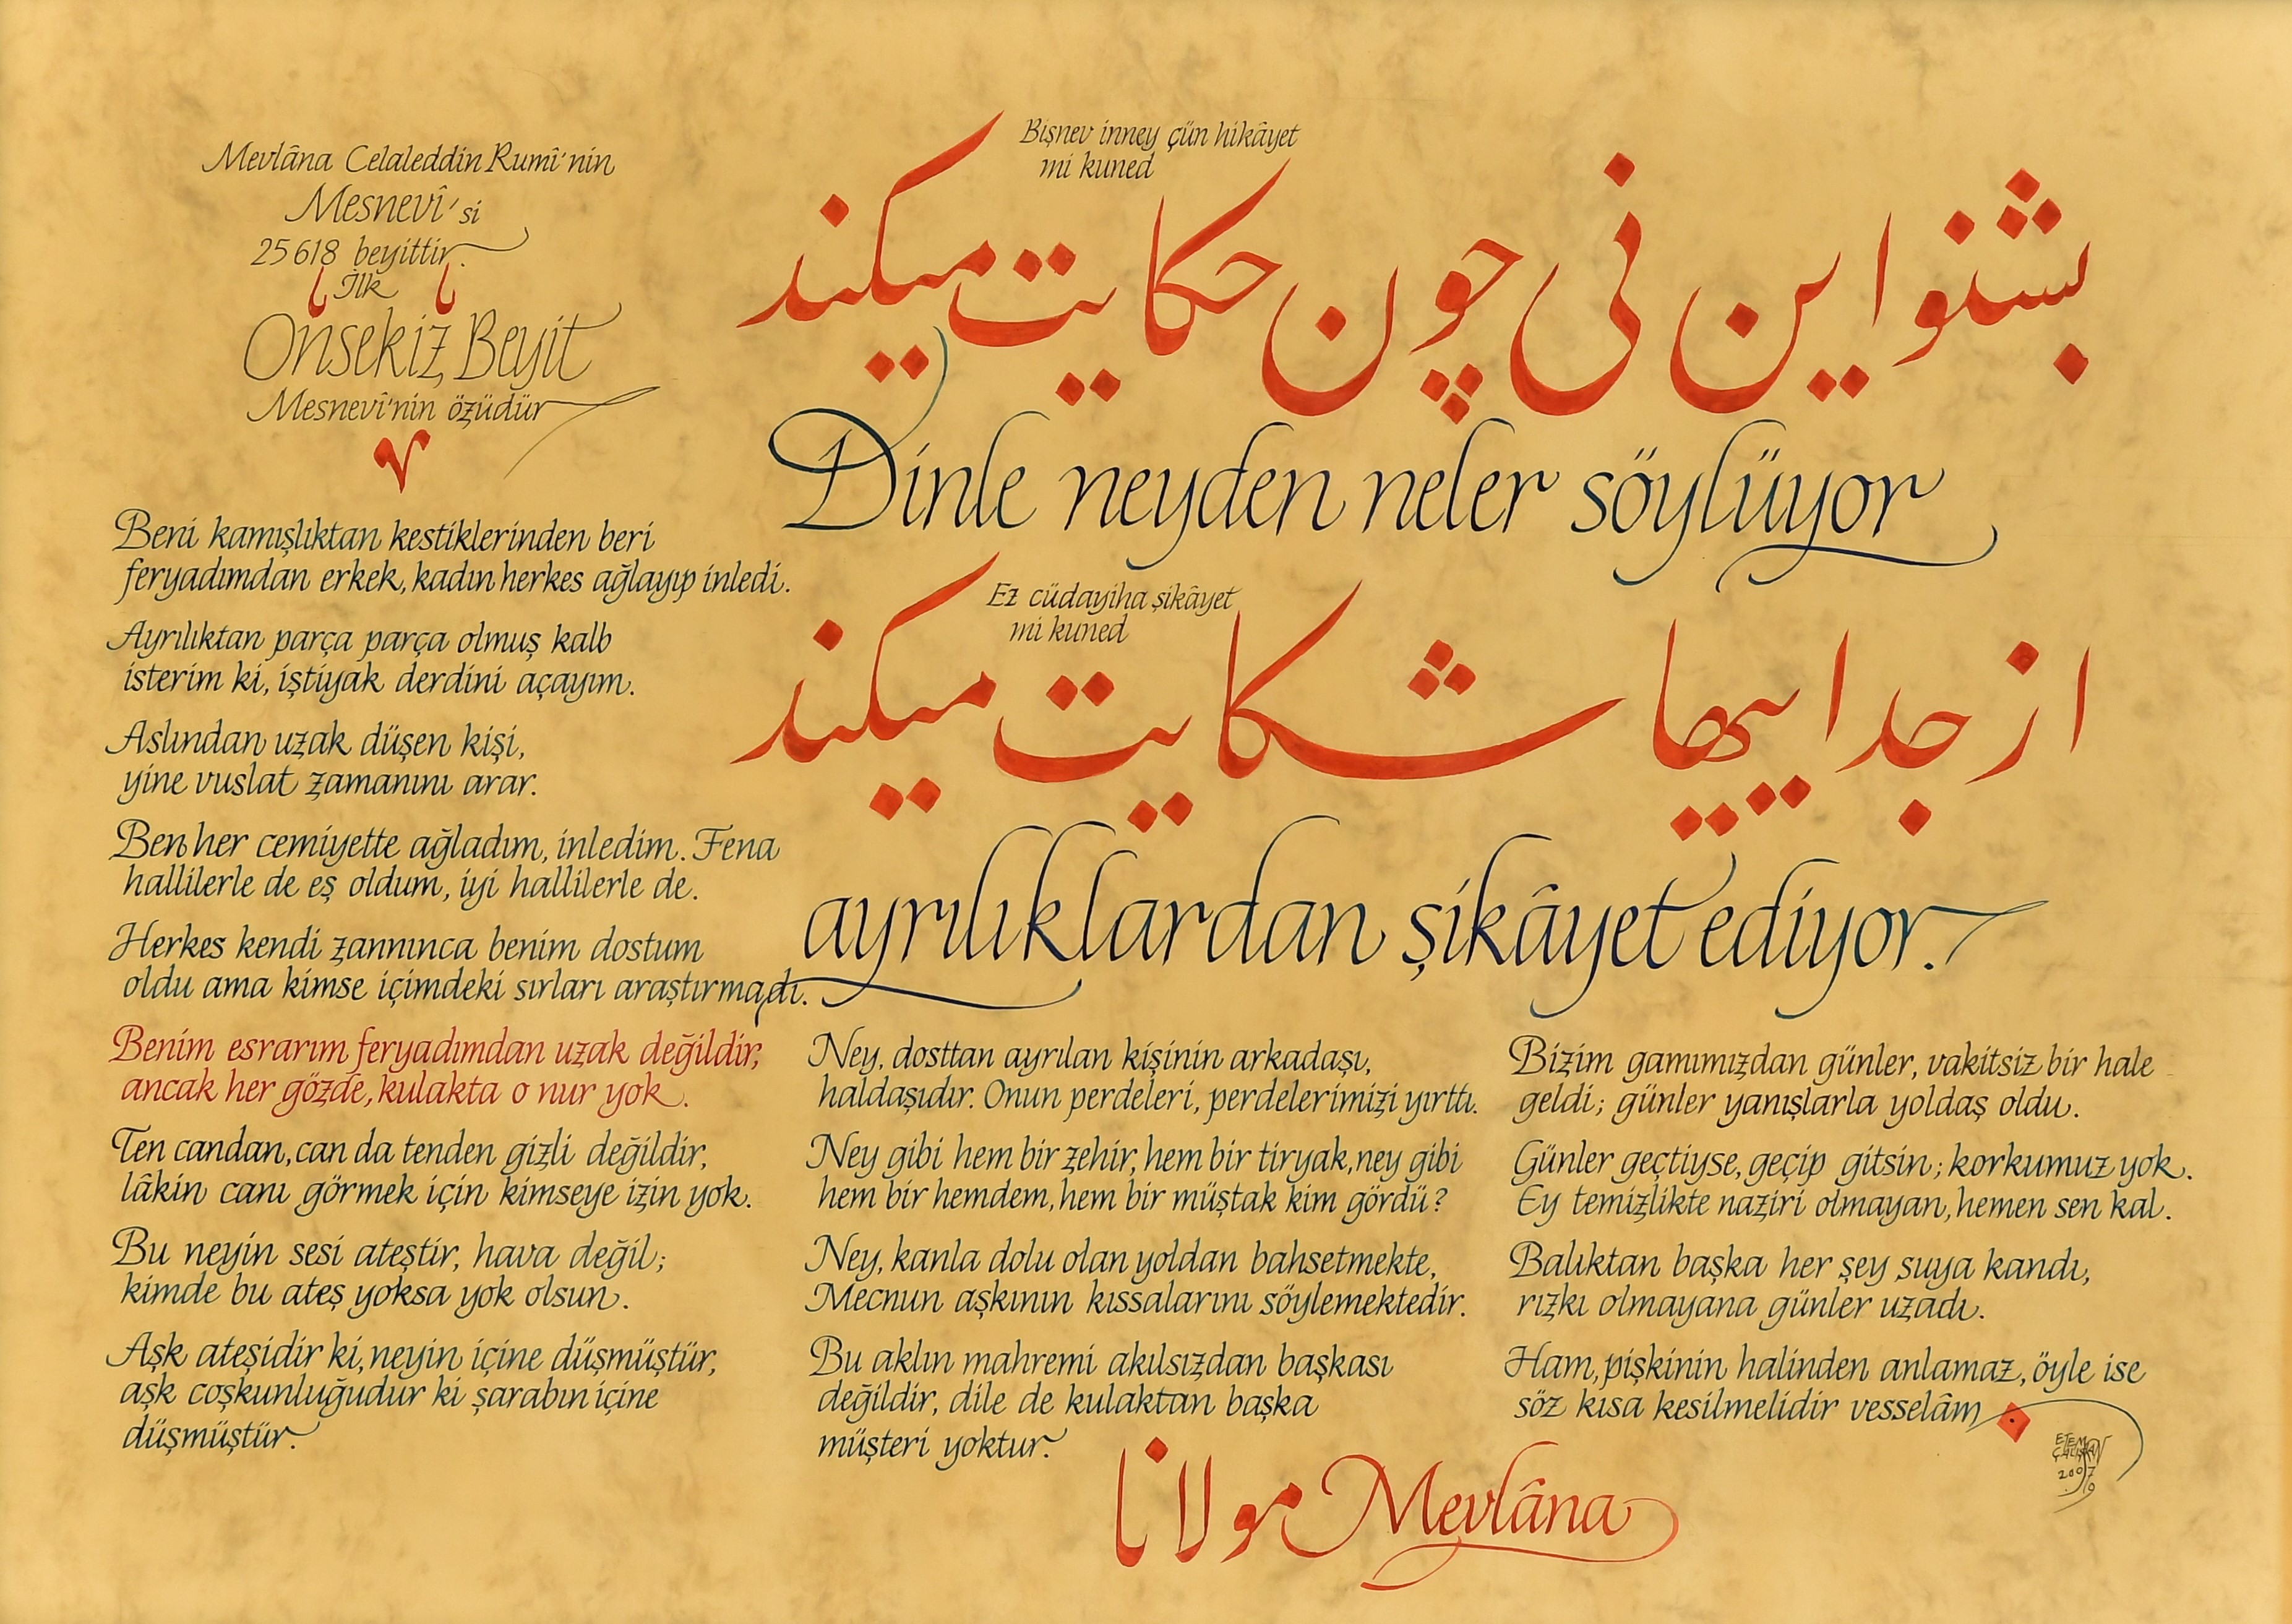 Mevlâna Celaleddin Rumî'nin
Mesnevî'si
25618 beyittir.
İlk
Onsekiz Beyit
Mesnevî'nin özüdür
Bişnev inney çün hikâyet
mi kuned
بشنو این نی چون حکایت میکند
Dinle neyden neler söylüyor
Ez cüdayiha şikâyet
mi kuned
از جداییها شکایت میکند
ayrılıklardan şikâyet ediyor.
Beni kamışlıktan kestiklerinden beri
feryadımdan erkek, kadın herkes ağlayıp inledi.
Ayrılıktan parça parça olmuş kalb
isterim ki, iştiyak derdini açayım.
Aslından uzak düşen kişi,
yine vuslat zamanını arar.
Ben her cemiyette ağladım, inledim. Fena
hallilerle de eş oldum, iyi hallilerle de.
Herkes kendi zannınca benim dostum
oldu ama kimse içimdeki sırları araştırmadı.
Benim esrarım feryadımdan uzak değildir,
ancak her gözde, kulakta o nur yok.
Ten candan, can da tenden gizli değildir,
lâkin canı görmek için kimseye izin yok.
Bu neyin sesi ateştir, hava değil;
kimde bu ateş yoksa yok olsun.
Aşk ateşidir ki, neyin içine düşmüştür,
aşk coşkunluğudur ki şarabın içine
düşmüştür.
Ney, dosttan ayrılan kişinin arkadaşı,
haldaşıdır. Onun perdeleri, perdelerimizi yırttı.
Ney gibi hem bir zehir, hem bir tiryak, ney gibi
hem bir hemdem, hem bir müştak kim gördü?
Ney, kanla dolu olan yoldan bahsetmekte,
Mecnun aşkının kıssalarını söylemektedir.
Bu aklın mahremi akılsızdan başkası
değildir, dile de kulaktan başka
müşteri yoktur.
Bizim gamımızdan günler, vakitsiz bir hale
geldi; günler yanışlarla yoldaş oldu.
Günler geçtiyse, geçip gitsin; korkumuz yok.
Ey temizlikte naziri olmayan, hemen sen kal.
Balıktan başka her şey suya kandı,
rızkı olmayana günler uzadı.
Ham, pişkinin halinden anlamaz, öyle ise
söz kısa kesilmelidir vesselâm
مولانا Mevlâna
ETEM
ÇALIŞKAN
2007